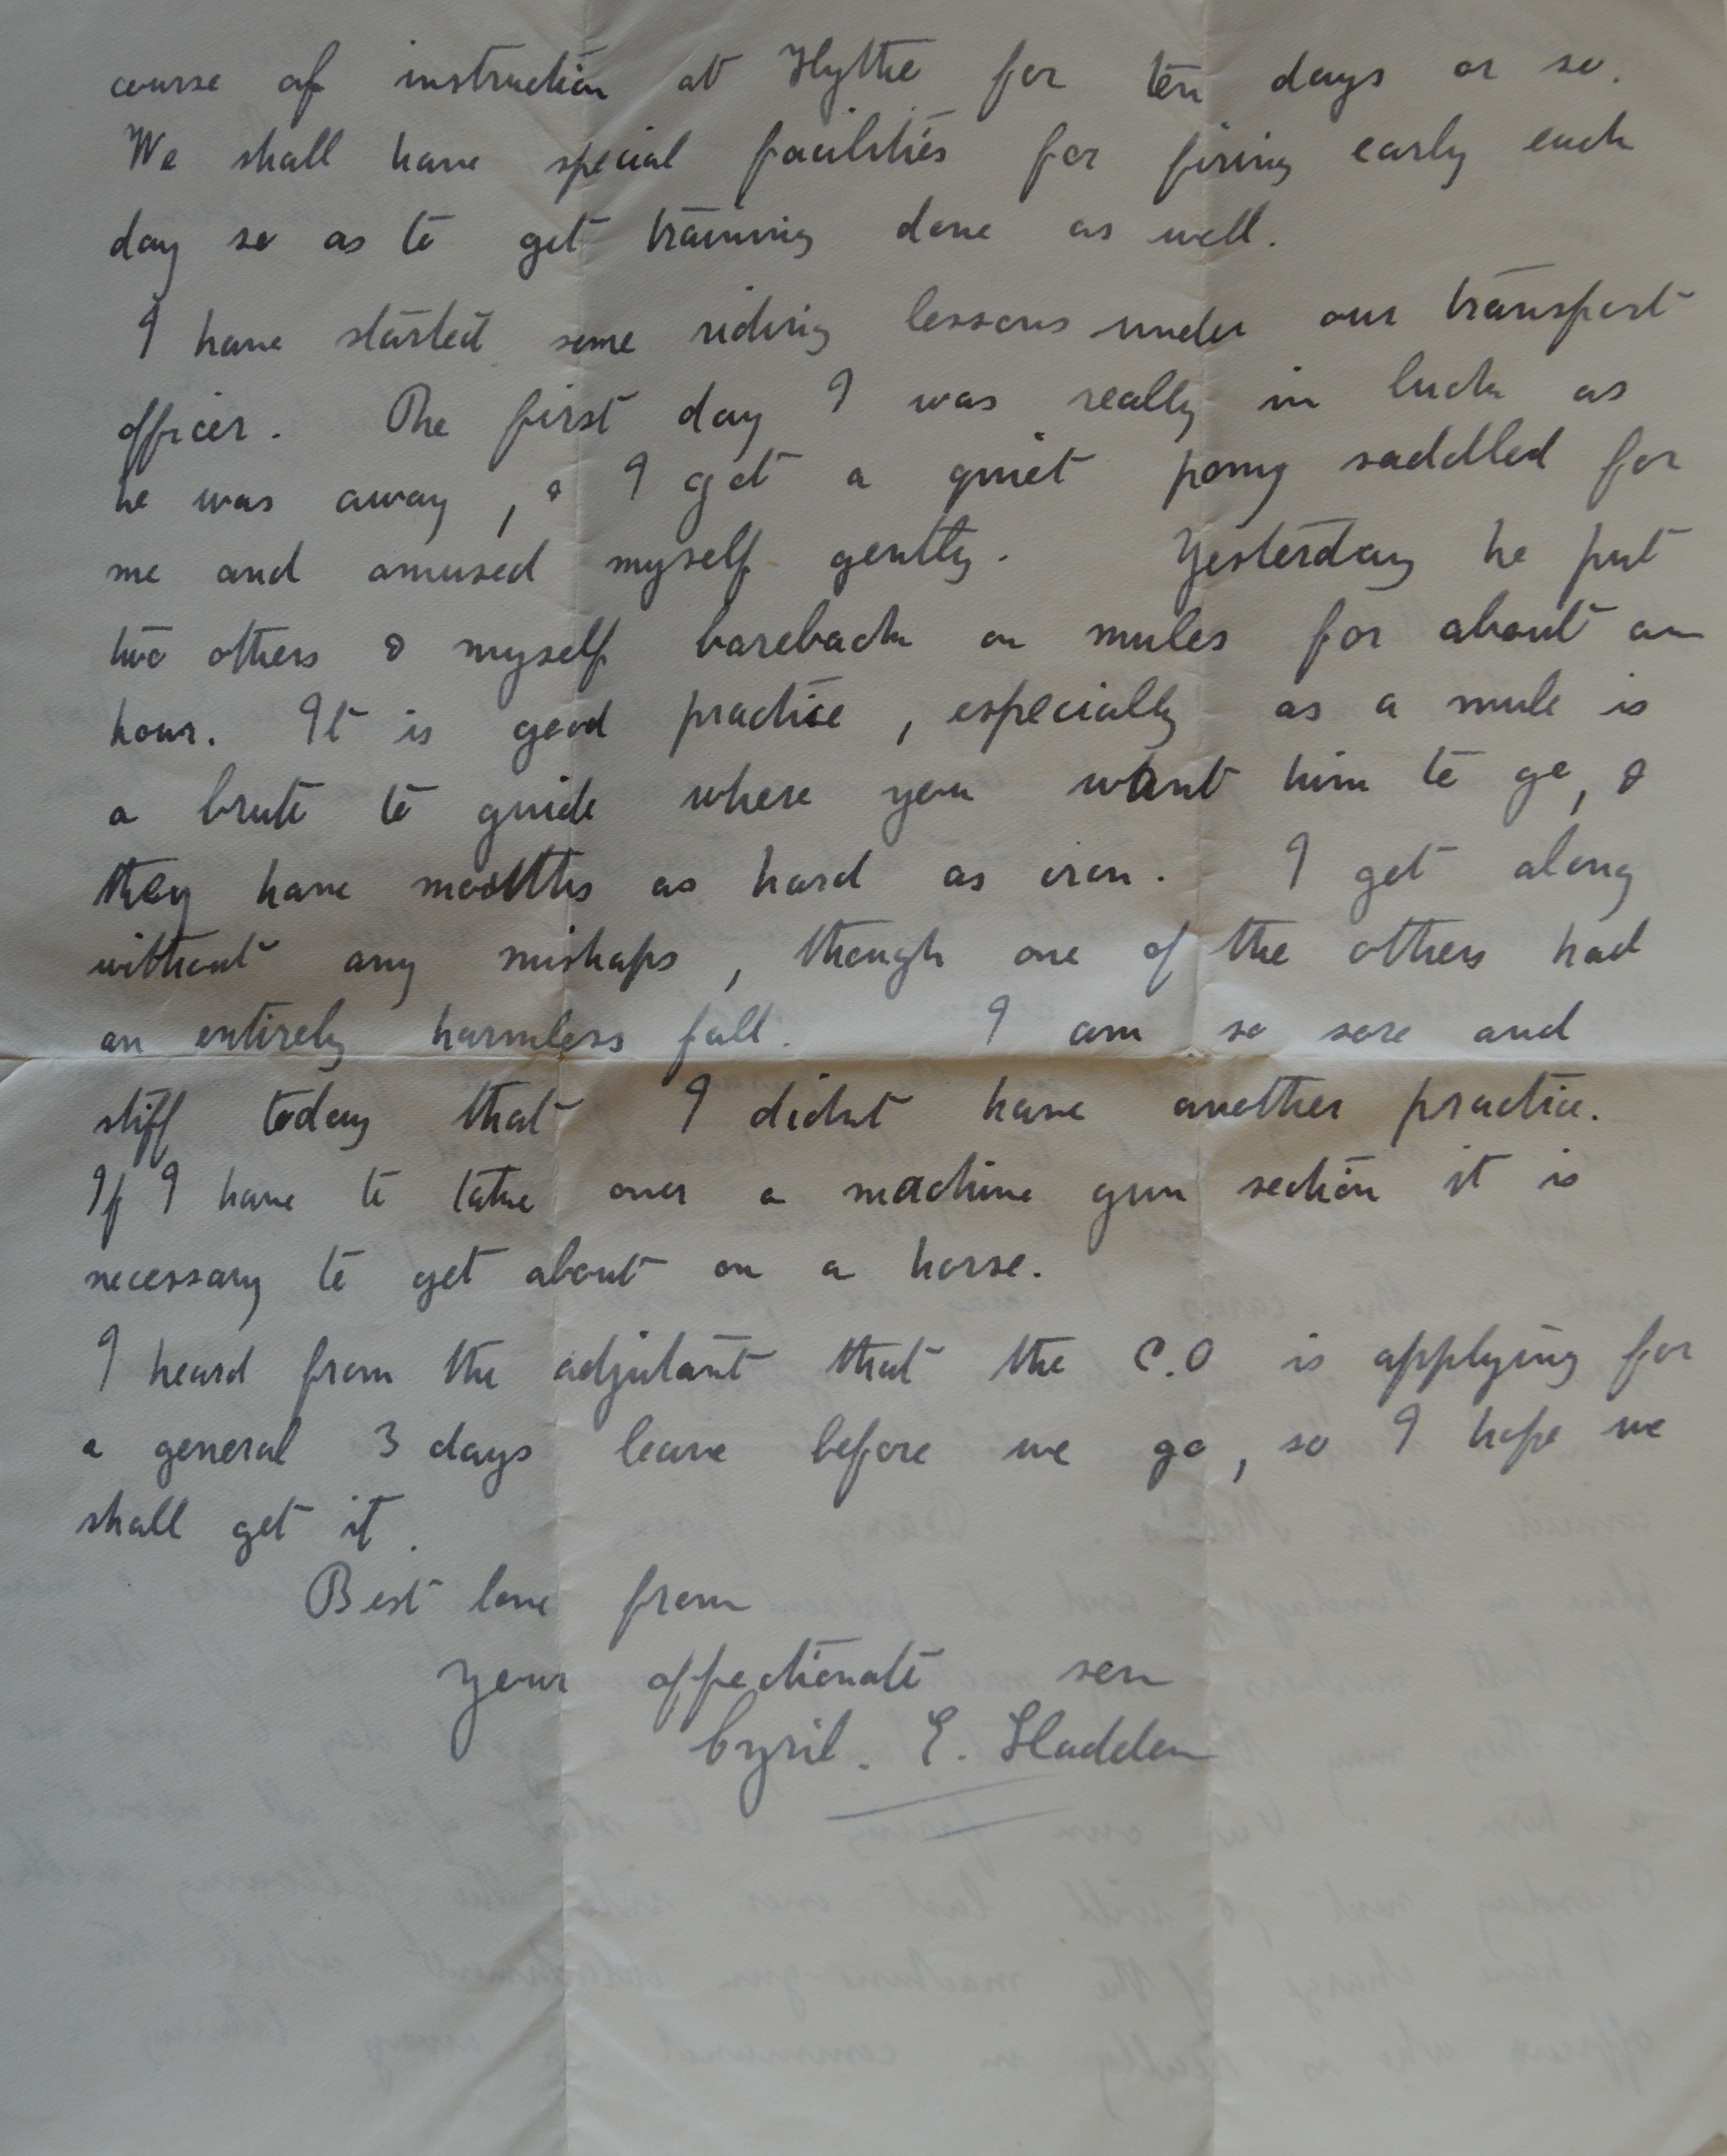 course of instruction at Hythe for ten days or so.
We shall have special facilities for firing early each
day so as to get training done as well.
I have started some riding lessons under our transport
officer. The first day I was really in luck as
he was away, & I got a quiet pony saddled for
me and amused myself gently. Yesterday he put
two others & myself bareback on mules for about an
hour. It is good practice, especially as a mule is
a brute to guide where you want him to go, &
they have mouths as hard as iron. I get along
without any mishaps, though one of the others had
an entirely harmless fall. I am so sore and
stiff today that I didnt have another practice.
If I have to take over a machine gun section it is
necessary to get about on a horse.
I heard from the adjutant that the C.O is applying for
a general 3 days leave before we go, so I hope we
shall get it.
Best love from
Your affectionate son
Cyril. E. Sladden